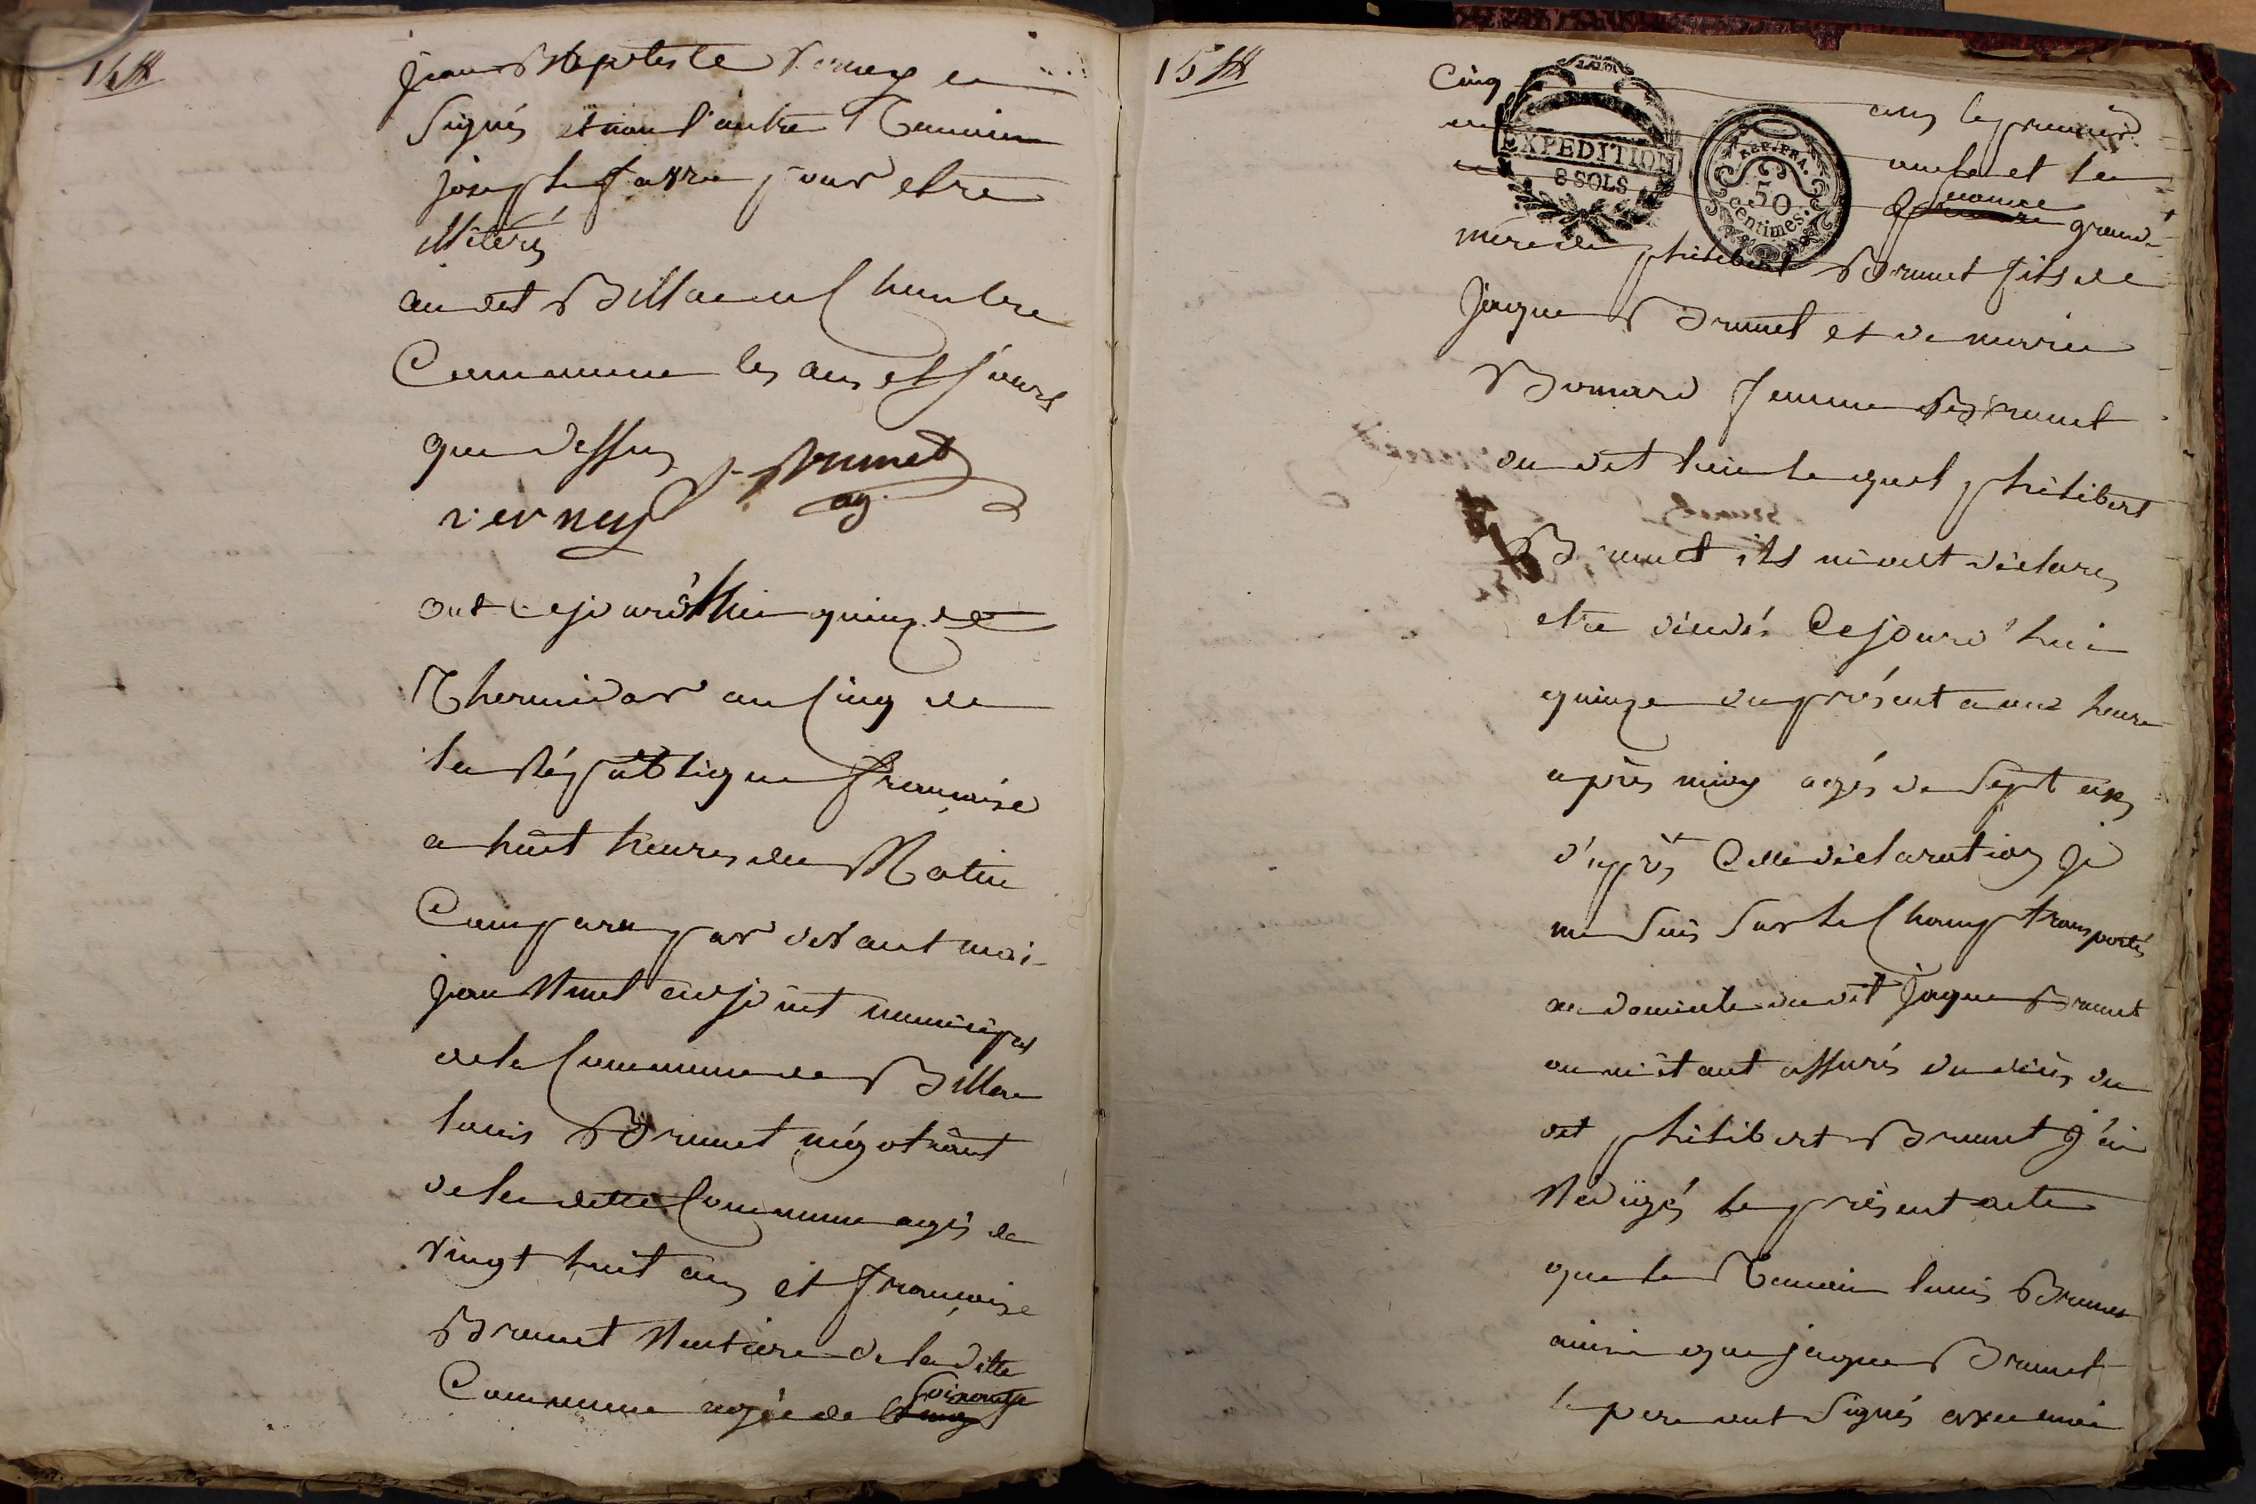 14
jean Baptiste Verney en
Signés et non l'autre Temoin
joseph favre pour etre
illiterés
au dit Billac en Chambre
Commune les an et jours
que dessus
J. Brunet
ag.
verney
out Cejourd'hui quinze de
Thermidor an Cinq de
la République française
a huit heures du Matin
Comparu par devant moi
jean adjoint municipal
de la Commune de
louis Brunet négotiant
de la ditte Commune agés de
vingt huit ans et françoise
Brunet Rentiere de la ditte
Commune agée de Soixante
15
Cinq ans le premier
oncle et la
EXPEDITION
8 SOLS
REP. FRA.
50
centimes.
grand
mere de philibert Brunet fils de
Jaque Brunet et de marie
femme Brunet
du dit lieu lequel philibert
Brunet ils m'ont déclarés
etre décédé Cejourd'hui
quinze du présent a une heure
après midy agés de Sept ans
d'après Cette déclaration je
me Suis Sur le Champ transportés
au domicile du dit Jaque Brunet
ou m'étant assurés du décès du
dit philibert Brunet j'ai
Redigés le présent acte
que le Temoin louis Brunet
ainsi que jaque Brunet
le pere ont Signés avec moi